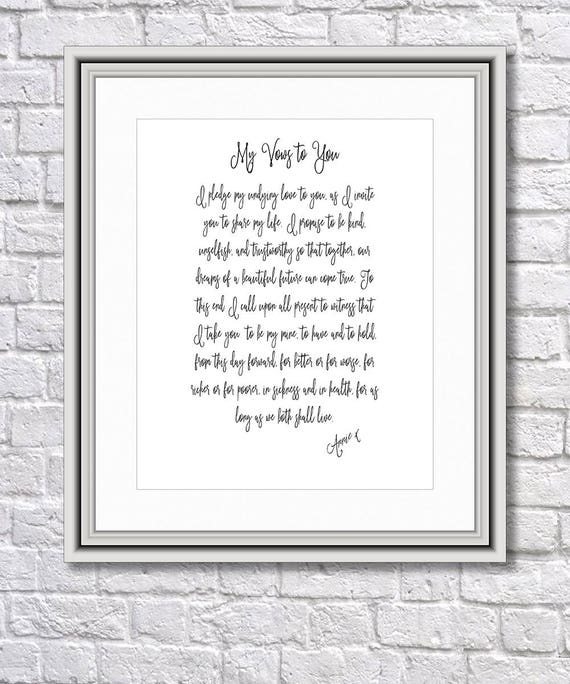 My Vows to You
I pledge my undying love to you, as I invite
you to share my life. I promise to be kind,
unselfish, and trustworthy so that together, our
dreams of a beautiful future can come true. To
this end, I call upon all present to witness that
I take you to be my mine, to have and to hold,
from this day forward, for better or for worse, for
richer or for poorer, in sickness and in health, for as
long as we both shall live.
Annie